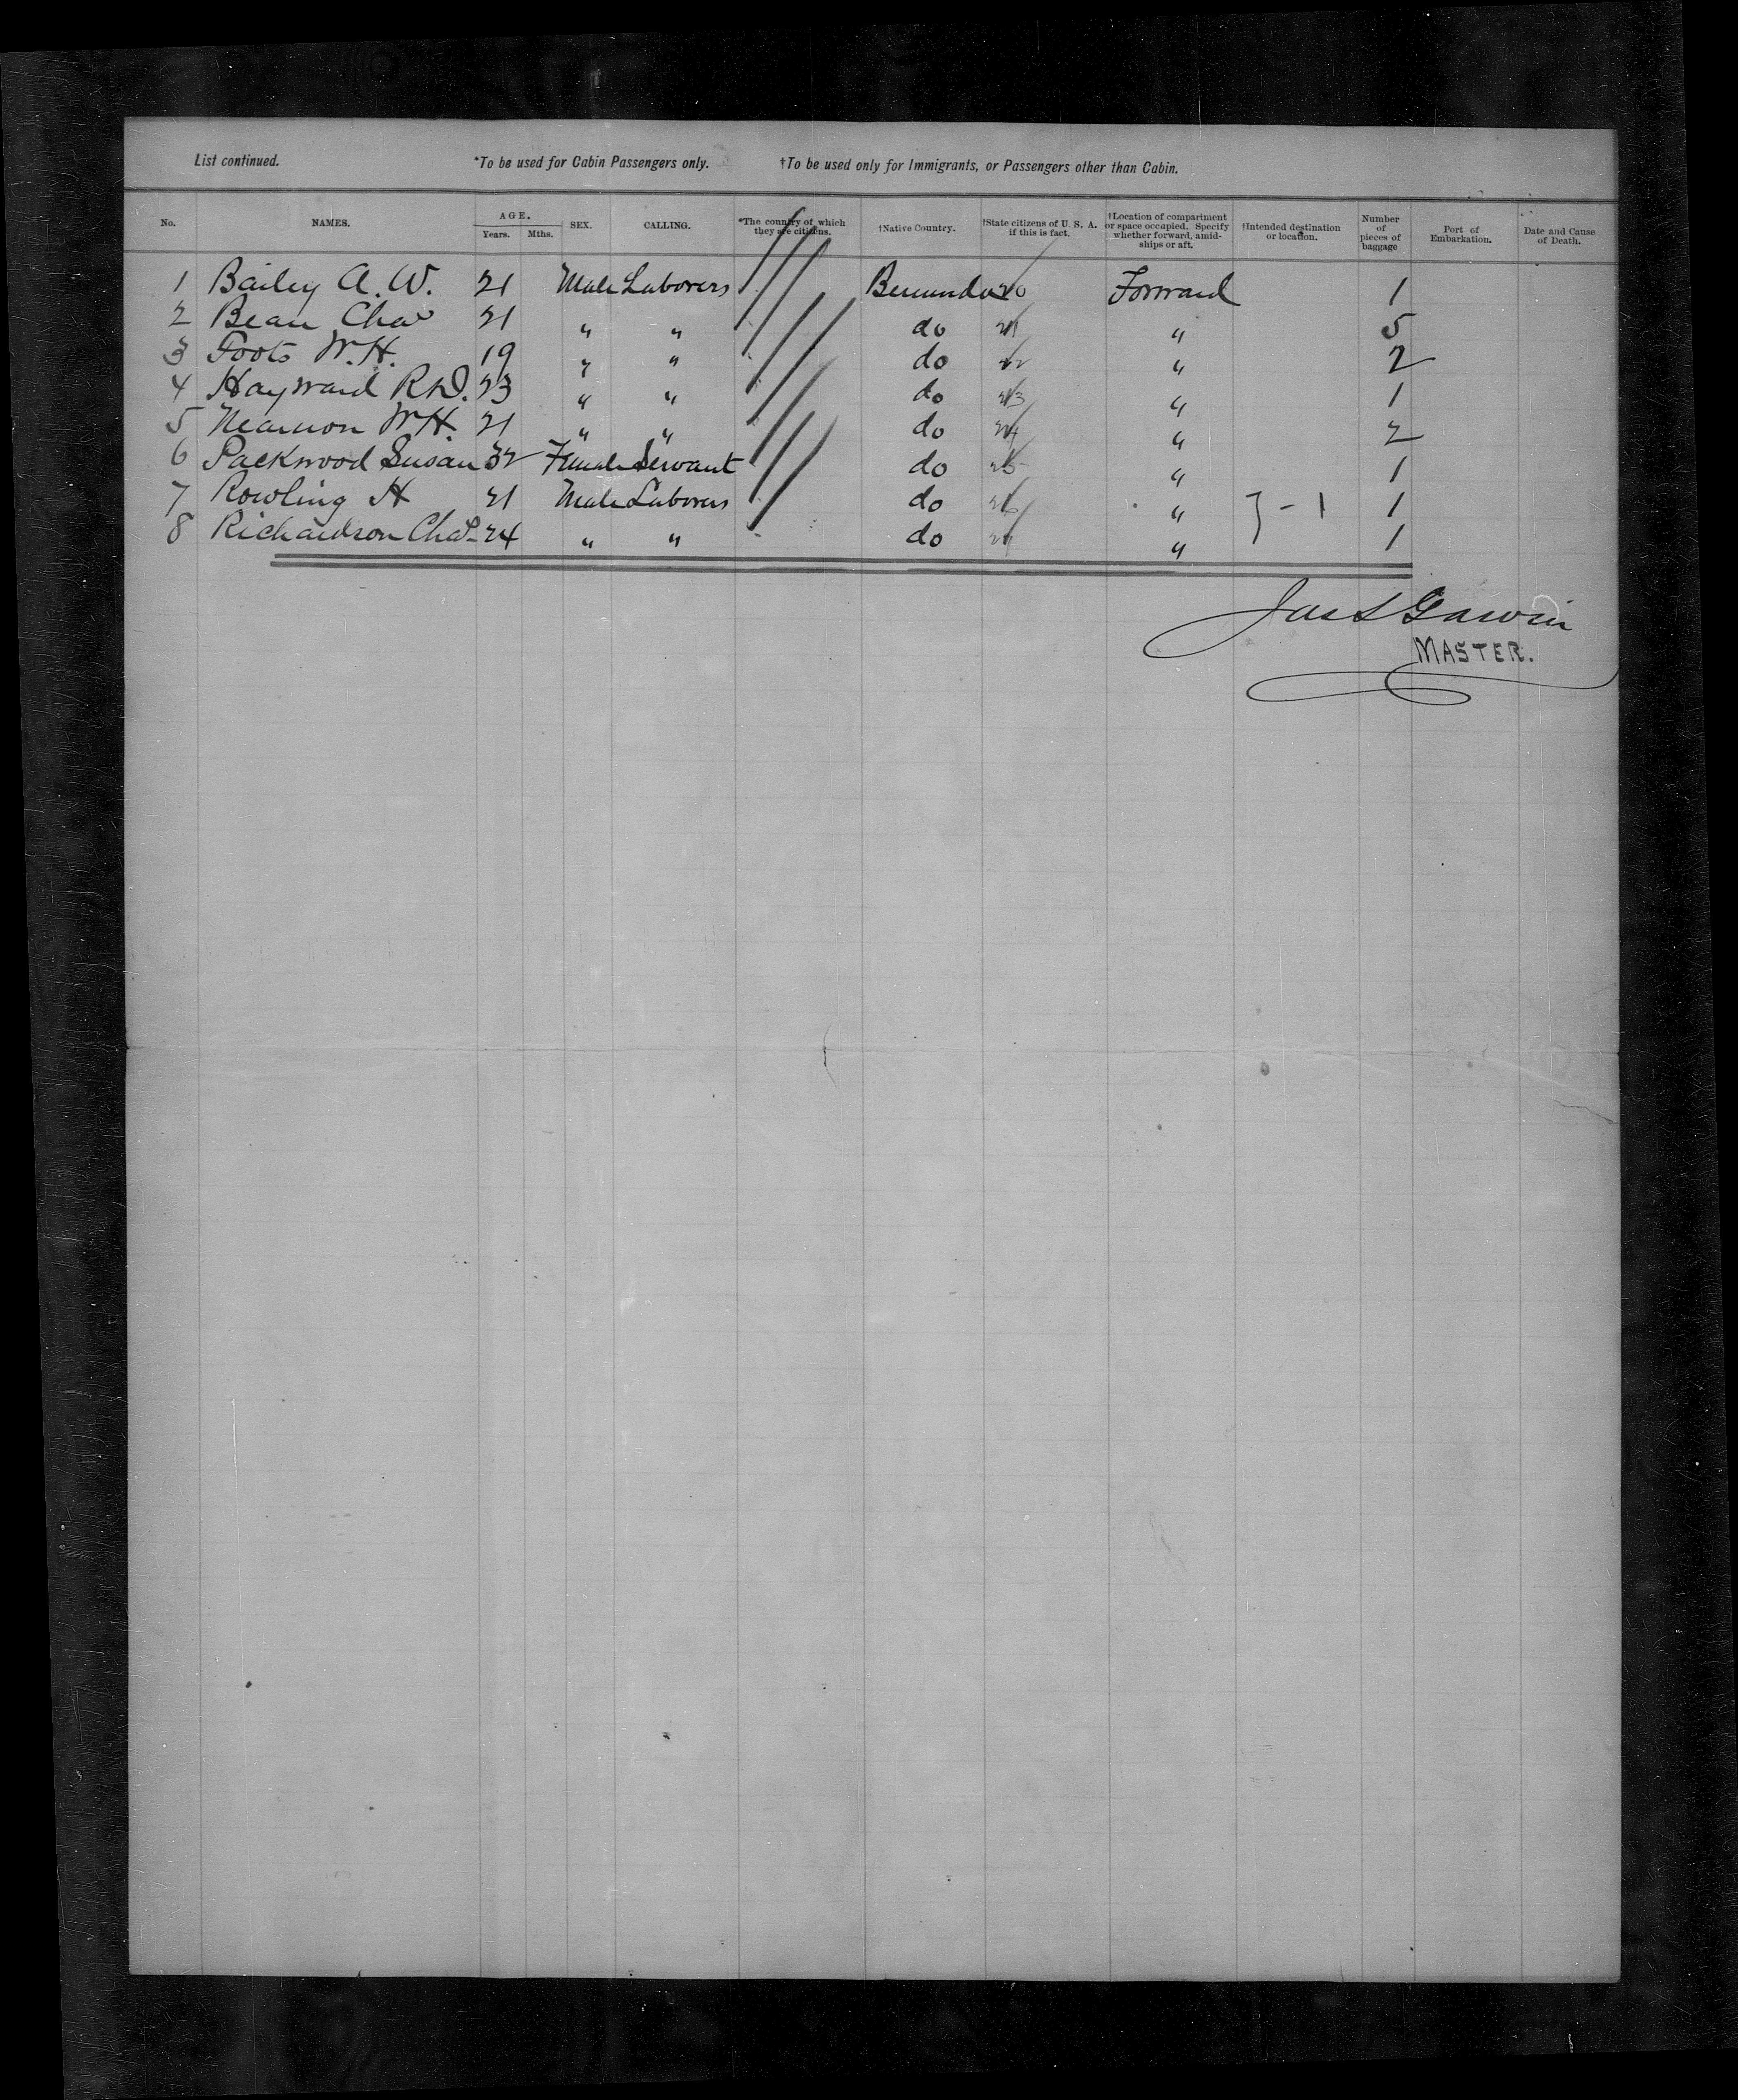 List continued. *To be used for Cabin Passengers only. †To be used only for Immigrants, or Passengers other than Cabin.
No. NAMES. AGE. Years. Mths. SEX. CALLING. *The country of which they are citizens. †Native Country. †State citizens of U. S. A. if this is fact. †Location of compartment or space occupied. Specify whether forward, amid-ships or aft. †Intended destination or location. Number of pieces of baggage Port of Embarkation. Date and Cause of Death.
1 Bailey A. W. 21 Male Laborers Bermuda 20 Forward 1
2 Bean Chas 21 " " do 21 " 5
3 Foots W. H. 19 " " do 22 " 2
4 Hayward 23 " " do 23 " 1
5 W H. 21 " " do 24 " 2
6 Packwood Susan 32 Female Servant do 25 " 1
7 Rowling H 21 Male Laborers do 26 " } - 1 1
8 Richardson Chas 24 " " do 27 " 1
Garvin
MASTER.